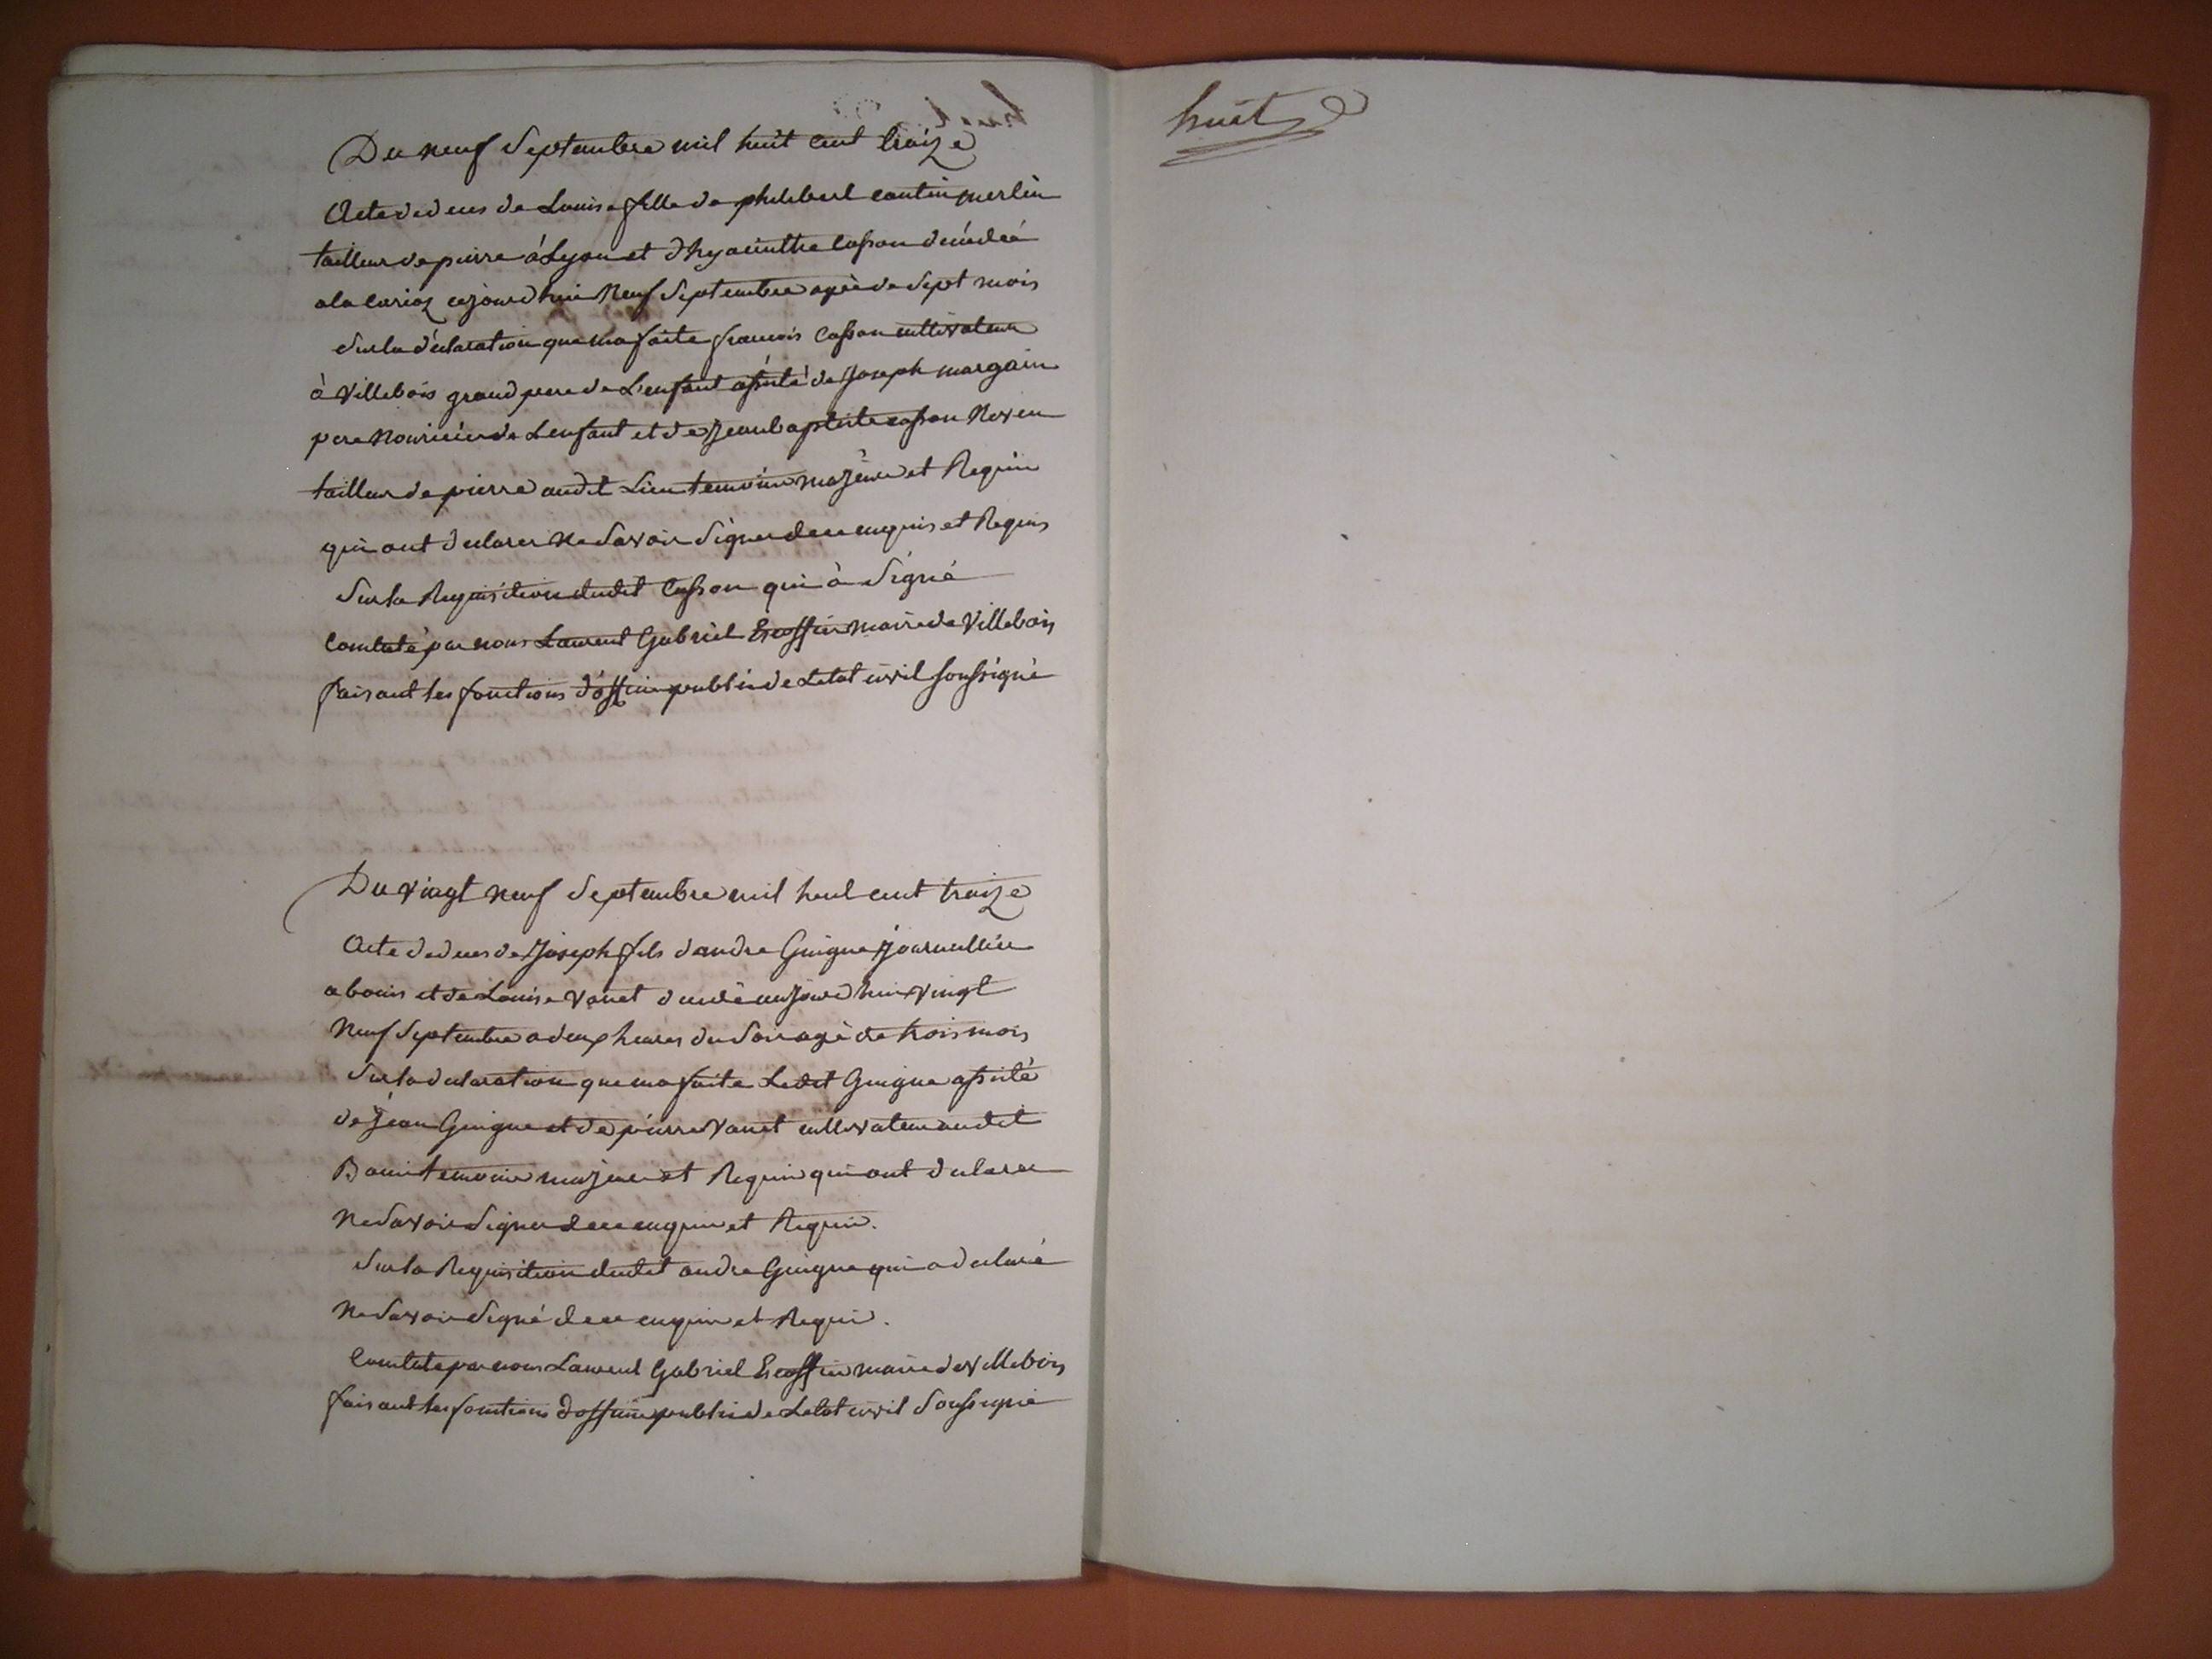 Du neuf Septembre mil huit cent traize
Acte de deces de Louise fille de philibert contin merlin
tailleur de pierre à Lyon et d'hyacinthe Casson décédeé
a la cariaz cejourd'hui Neuf Septembre ageè de Sept mois
Sur la déclaration que ma faite francois Casson cultivateur
à Villebois grand pere de L'enfant assisté de Joseph margain
pere Nouricier de Lenfant et de Jean baptiste casson Neveu
tailleur de pierre audit Lieu temoins majeurs et Requis
qui ont declarer ne Savoir Signer de ce enquis et Requis
Sur la Requisition dudit Casson qui à Signé
Constaté par nous Laurent Gabriel Escoffier maire de Villebois
faisant les fonctions d'officier public de Letat civil soussigné
Du vingt neuf Septembre mil huit cent traize
Acte de deces de Joseph fils d'andre Guigue Journallier
a bouis et de Louise Vanet decedé aujourd'hui vingt
Neuf Septembre a deux heures du Soir agè de trois mois
Sur la declaration que ma faite Ledit Guigue assisté
de Jean Guigue et de pierre Vanet cultivateur audit
Bouis temoins majeurs et Requis qui ont declarer
Ne Savoir Signer de ce enquis et Requis.
Sur la Requisition dudit andre Guigue qui a declaré
Ne Savoir Signé de ce enquis et Requis.
Constaté par nous Laurent Gabriel Escoffier maire de villebois
faisant les fonctions d'officier public de Letat civil Soussigné
huit